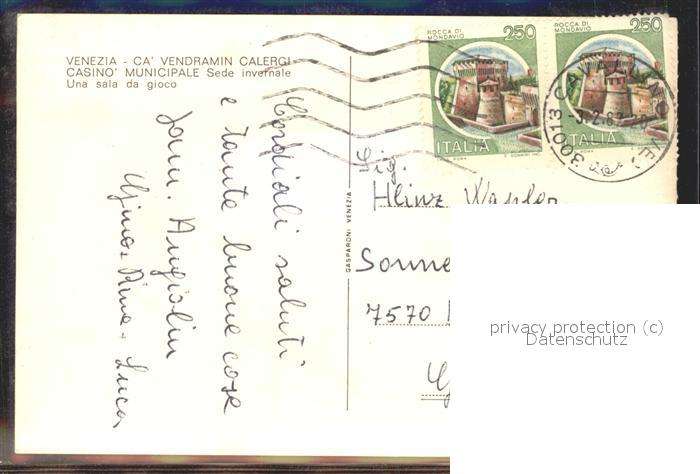 VENEZIA - CA' VENDRAMIN CALERGI
CASINO' MUNICIPALE Sede invernale
Una sala da gioco
Cordiali saluti
e tante buone cose
Fam. Angiolin
Gino - Rina - Luca
GASPARONI VENEZIA
ROCCA DI
MONDAVIO
250
ITALIA
ROCCA DI
MONDAVIO
250
ITALIA
30013
Sig.
Heinz
Sonne
7570
privacy protection (c)
Datenschutz